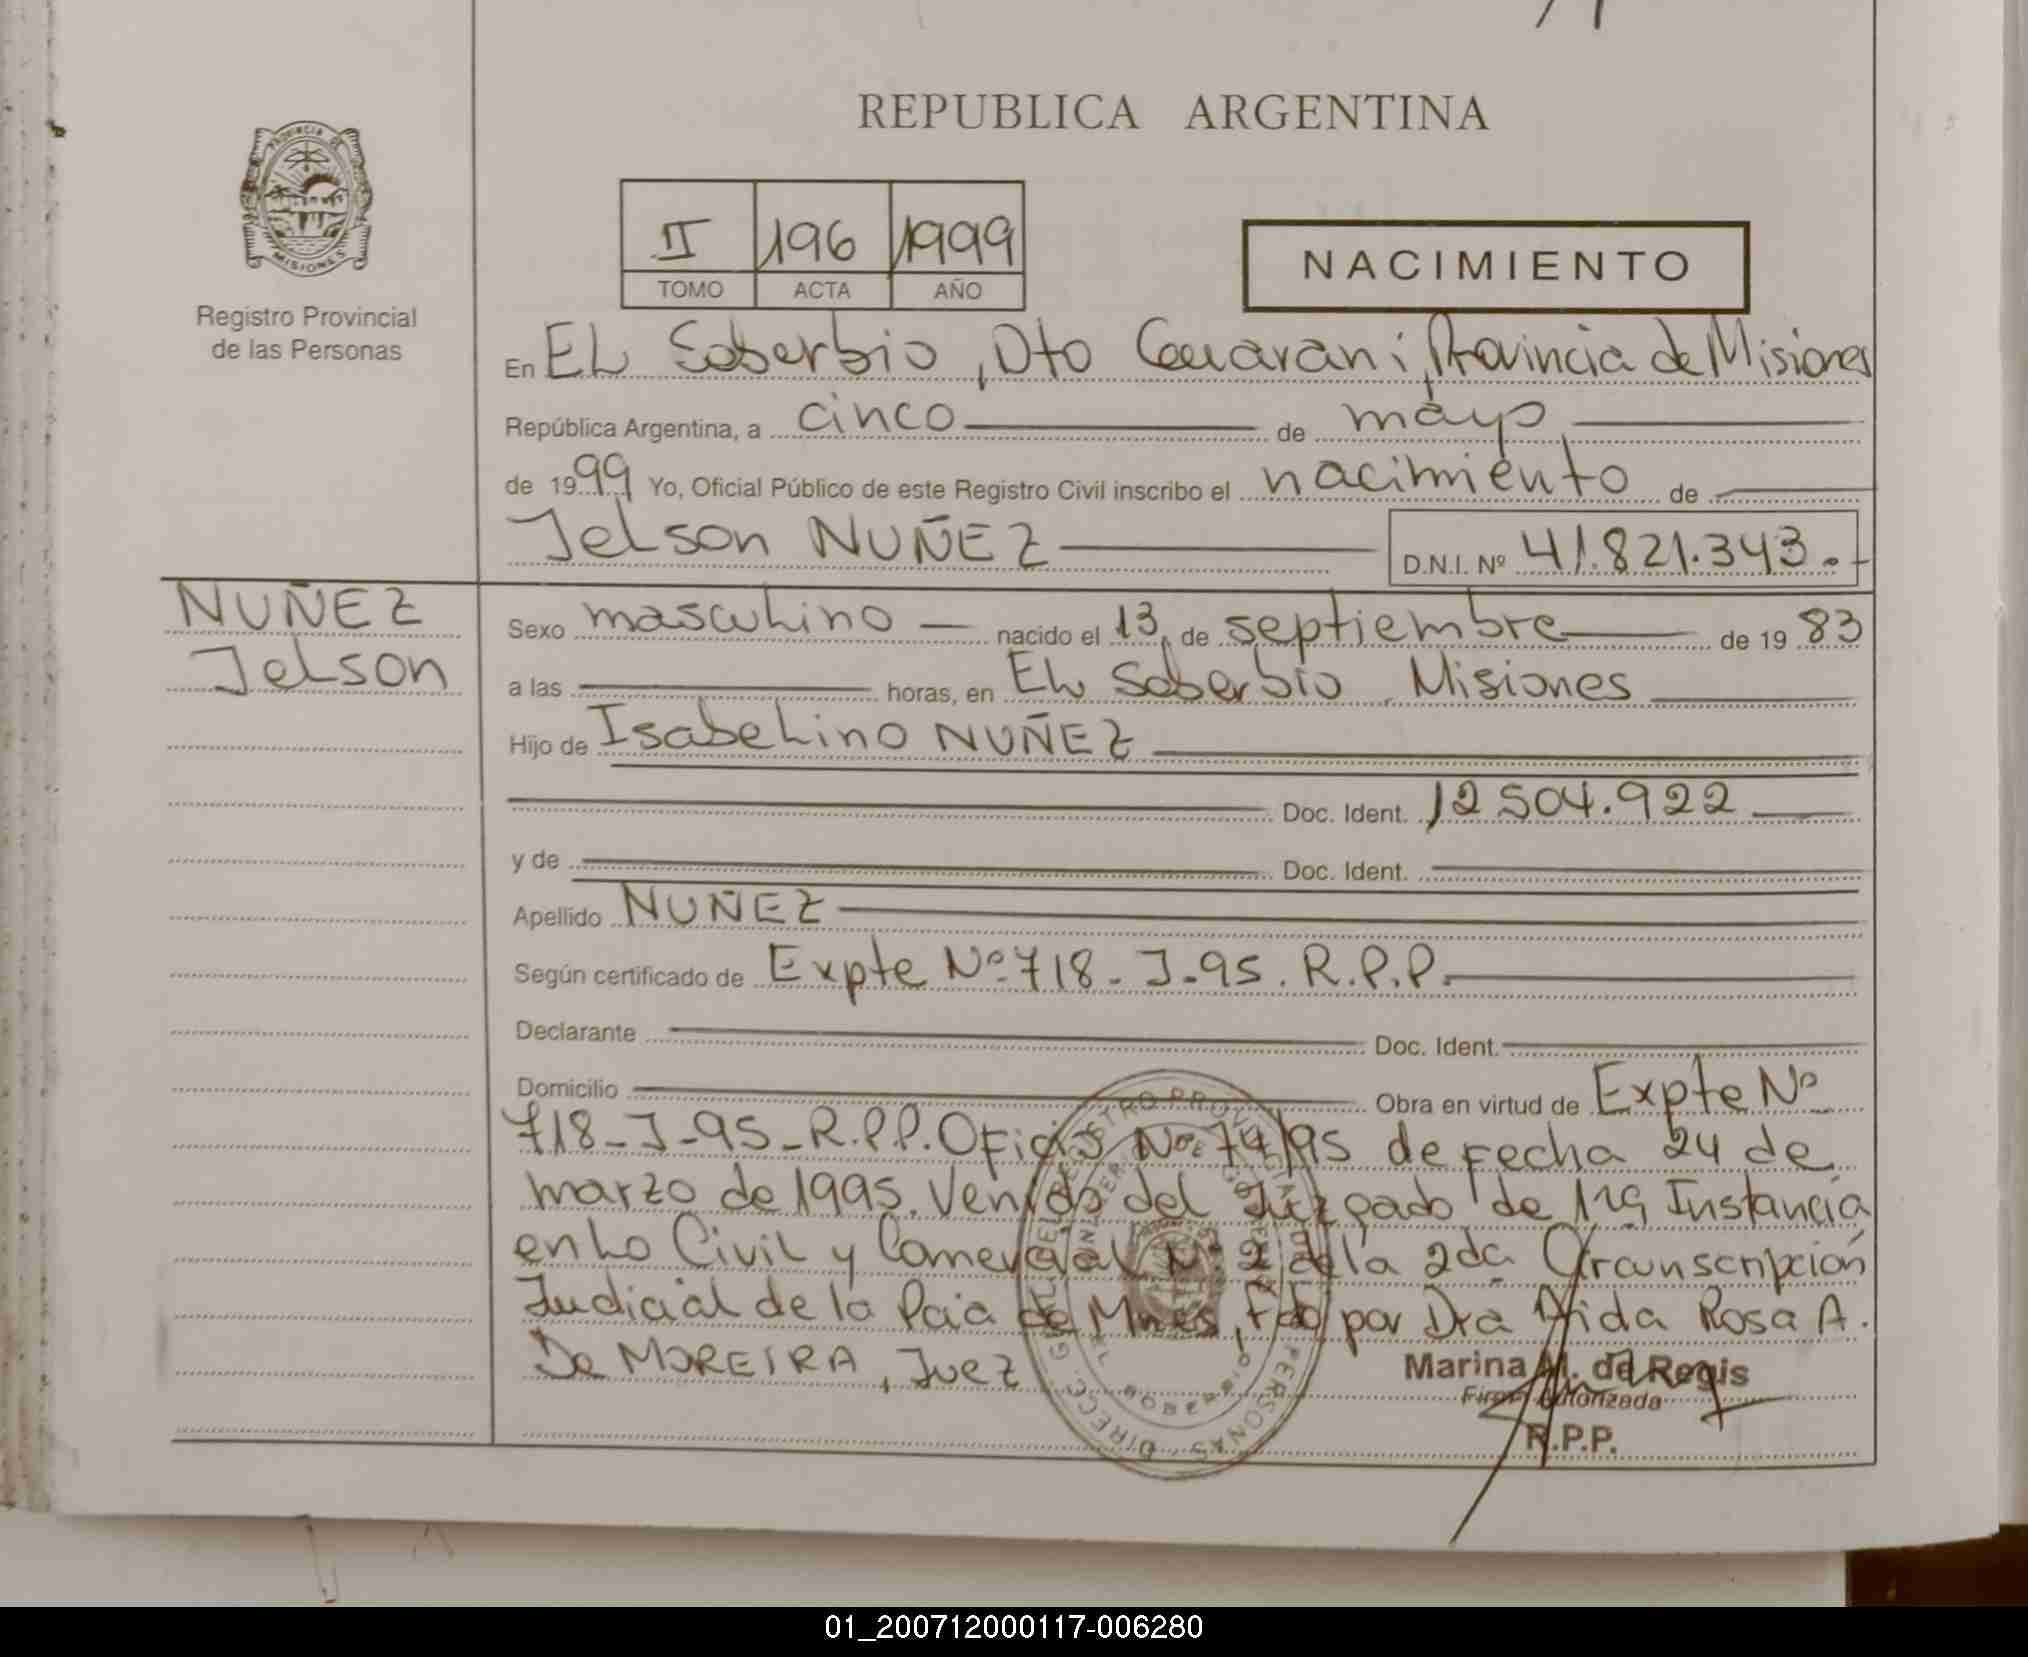 REPUBLICA ARGENTINA
PROVINCIA DE
MISIONES
Registro Provincial
de las Personas
II 196 1999
TOMO ACTA AÑO
NACIMIENTO
En EL Soberbio, Dto Guarani, Provincia de Misiones
República Argentina, a cinco de mayo
de 1999 Yo, Oficial Público de este Registro Civil inscribo el nacimiento de
Jelson NUÑEZ D.N.I. Nº 41.821.343.-
NUÑEZ
Jelson
Sexo masculino nacido el 13 de septiembre de 19 83
a las horas, en EL Soberbio, Misiones
Hijo de Isabelino NUÑEZ
Doc. Ident. 12504.922
y de Doc. Ident.
Apellido NUÑEZ
Según certificado de Expte Nº 718-J-95. R.P.P.
Declarante Doc. Ident.
Domicilio Obra en virtud de Expte Nº
718-J-95-R.P.P. Oficio Nº 74/95 de fecha 24 de
marzo de 1995. Venido del Juzgado de 1ra Instancia
en Lo Civil y Comercial Nº 2 de la 2da Circunscripción
Judicial de la Pcia de Mnes, Fdo por Dra Aida Rosa A.
De MOREIRA, Juez
Marina M. de Regis
Firma Autorizada
R.P.P.
01_200712000117-006280